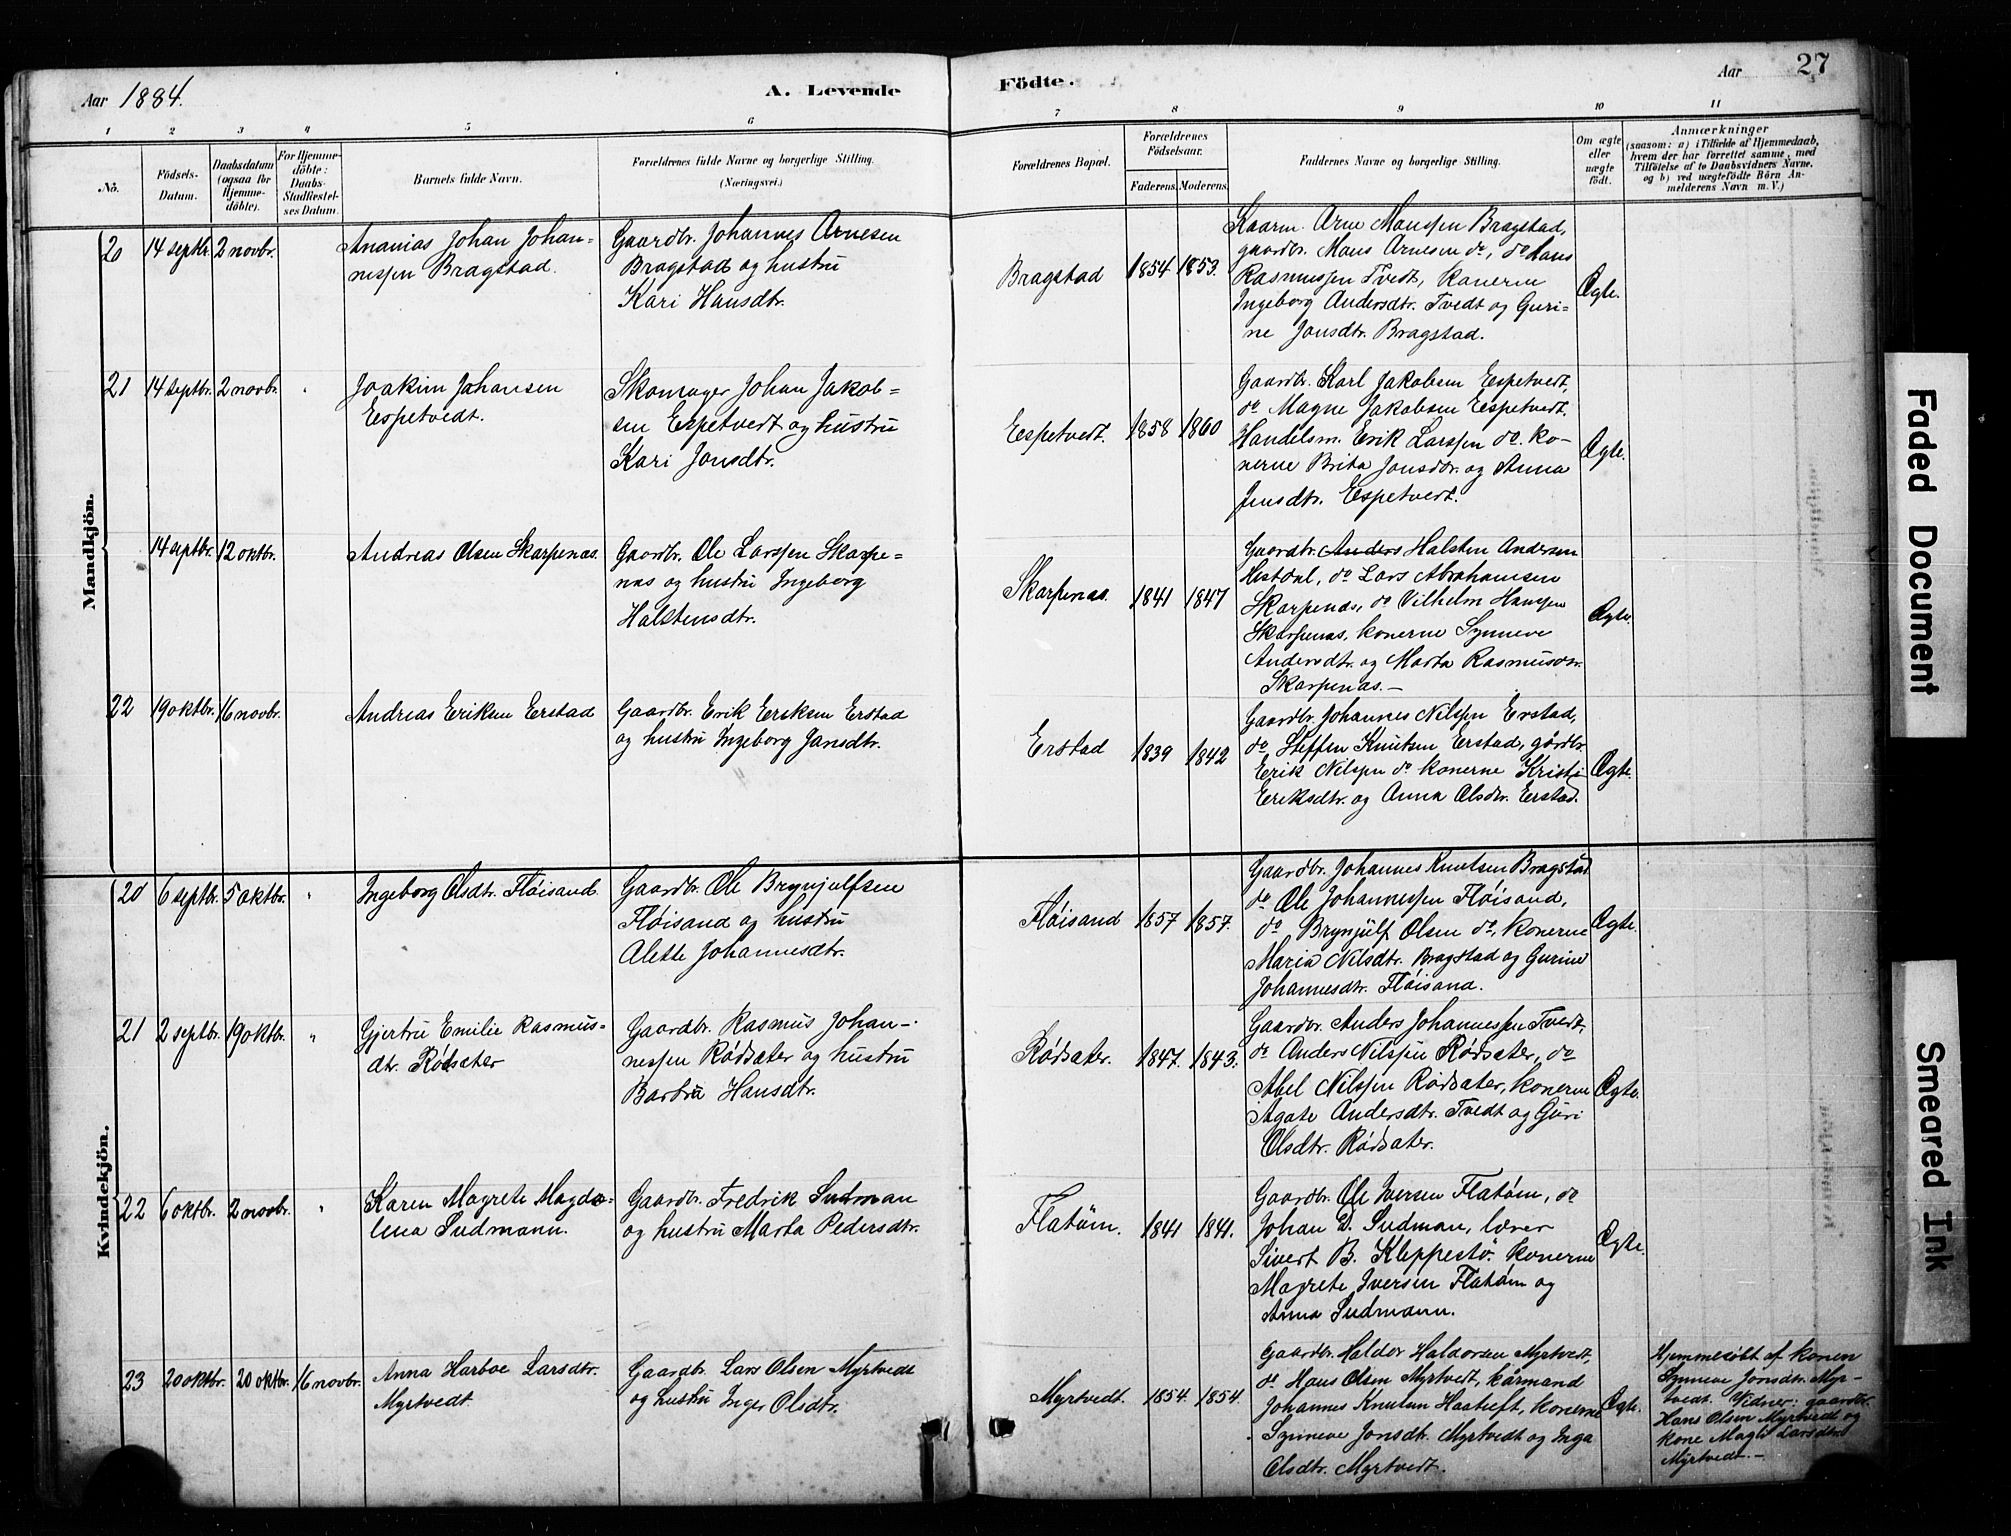 Aar 1884.
A. Levende
Födte.
Aar
27
1
2
3
4
5
6
7
8
9
10
11
No.
Födsels-
Datum.
Daabsdatum
(ogsaa for
Hjemme-
döbte).
For Hjemme-
döbte:
Daabs-
Stadfæstel-
ses Datum.
Barnets fulde Navn.
Forældrenes fulde Navne og borgerlige Stilling.
(Næringsvei.)
Forældrenes Bopæl.
Forældrenes
Födselsaar.
Faderens.
Moderens.
Faddernes Navne og borgerlige Stilling.
Om ægte
eller
uægte
födt.
Anmærkninger
(saasom: a) i Tilfælde af Hjemmedaab,
hvem der har forrettet samme, med
Tilföielse af to Daabsvidners Navne.
og b) ved uægtefödte Börn An-
melderens Navn m. V.)
Mandkjön.
20
14 septbr.
2 novbr.
Ananias Johan Johan-
nessen Bragstad.
Gaardbr. Johannes Arnesen
Bragstad og hustru
Kari Hansdtr.
Bragstad
1854
1853.
Kaarm. Arne Monssen Bragstad,
gaardbr. Mons Arnesen do, do Hans
Rasmussen Tvedt, konerne
Ingeborg Andersdtr. Tvedt og Guri-
ne Jonsdtr. Bragstad.
Ægte.
21
14 septbr.
2 novbr.
Joakim Johansen
Espetvedt.
Skomager Johan Jakob-
sen Espetvedt og hustru
Kari Jonsdtr.
Espetvedt.
1858
1860
Gaardbr. Karl Jakobsen Espetvedt,
do Magne Jakobsen Espetvedt,
Handelsm. Erik Larssen do. ko-
nerne Brita Jonsdtr. og Anna
Jensdtr. Espetvedt.
Ægte.
14 septbr.
12 oktbr.
Andreas Olsen Skarpenas.
Gaardbr. Ole Larssen Skarpe-
nas og hustru Ingeborg
Halstensdtr.
Skarpenas.
1841
1847
Gaardbr. Anders Halsten Andersen
Hestdal, do Lars Abrahamsen
Skarpenas, do Vilhelm Hanssen
Skarpenas, konerne Synneve
Andersdtr. og Marta Rasmusdtr.
Skarpenas.—
Ægte.
22
19 oktbr.
16 novbr.
Andreas Eriksen Erstad
Gaardbr. Erik Eriksen Erstad
og hustru Ingeborg Jansdtr.
Erstad
1839
1842
Gaardbr. Johannes Nilssen Erstad,
do Steffen Knutsen Erstad, gårdbr
Erik Nilssen do konerne Kristi
Eriksdtr. og Anna Olsdtr. Erstad.
Ægte.
Kvindekjön.
20
6 septbr.
5 oktbr.
"
Ingeborg Olsdtr. Fløisand.
Gaardbr. Ole Brynjulfsen
Fløisand og hustru
Alette Johannesdtr.
Fløisand
1857
1857.
Gaardbr. Johannes Knutsen Bragstad
do Ole Johannessen Fløisand,
do Brynjulf Olsen do, konerne
Maria Nilsdtr. Bragstad og Gurine
Johannesdtr. Fløisand.
Ægte.
21
2 septbr.
19 oktbr.
"
Gjertru Emilie Rasmus-
dtr. Rødsæter
Gaardbr. Rasmus Johan-
nessen Rødsæter og hustru
Barbra Hansdtr.
Rødsæter.
1847
1843.
Gaardbr. Anders Johannessen Tvedt,
do Anders Nilssen Rødsæter, do
Abel Nilssen Rødsæter, konerne
Agate Andersdtr. Tvedt og Guri
Olsdtr. Rødsæter.
Ægte.
22
6 oktbr.
2 novbr.
"
Karen Magrete Magda-
lena Sudmann.
Gaardbr. Fredrik Sudman
og hustru Marta Pedersdtr.
Flatøm.
1841
1841.
Gaardbr. Ole Iversen Flatøm, do
Johan D. Sudman, lærer
Sivert B. Kleppestö. konerne
Magrete Iversen Flatøm og
Anna Sudmann.
Ægte.
23
20 oktbr.
20 oktbr.
16 novbr.
Anna Harboe Larsdtr.
Myrtvedt
Gaardbr. Lars Olsen Myrtvedt
og hustru Inger Olsdtr.
Myrtvedt.
1854
1854.
Gaardbr. Haldor Haldorsen Myrtvedt,
do Hans Olsen Myrtvedt, kårmand
Johannes Knutsen Haatuft, konerne
Synneve Jonsdtr. Myrtvedt og Inga
Olsdtr. Myrtvedt.
Ægte.
Hjemmedøbt af konen
Synneve Jonsdtr. Myr-
tvedt. Vidner: gaardbr.
Hans Olsen Myrtvedt og
kone Magli Larsdtr
Myrtvedt.—
Faded Document
Smeared Ink